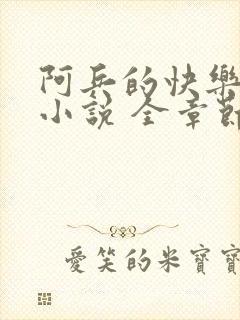 阿兵的快樂
小說 全章節
愛笑的米寶寶